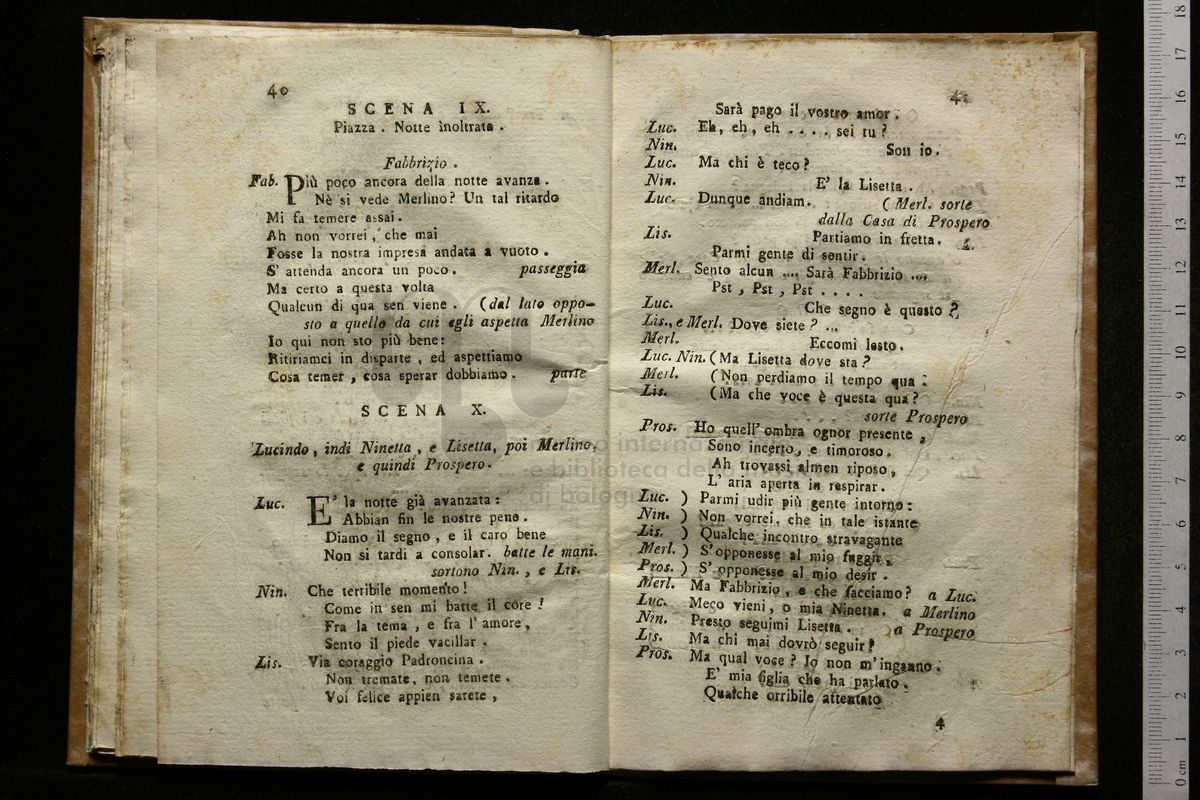 40
SCENA IX.
Piazza . Notte inoltrata .
Fabbrizio .
Fab. Più poco ancora della notte avanza .
Nè si vede Merlino? Un tal ritardo
Mi fa temere assai .
Ah non vorrei , che mai
Fosse la nostra impresa andata a vuoto .
S' attenda ancora un poco . passeggia
Ma certo a questa volta
Qualcun di qua sen viene . (dal lato oppo-
sto a quello da cui egli aspetta Merlino
Io qui non sto più bene:
Ritiriamci in disparte , ed aspettiamo
Cosa temer , cosa sperar dobbiamo . parte
SCENA X.
Lucindo , indi Ninetta , e Lisetta, poi Merlino,
e quindi Prospero .
Luc. E' la notte già avanzata :
Abbian fin le nostre pene .
Diamo il segno , e il caro bene
Non si tardi a consolar. batte le mani.
sortono Nin. , e Lis.
Nin. Che terribile momento !
Come in sen mi batte il core !
Fra la tema , e fra l' amore ,
Sento il piede vacillar .
Lis. Via coraggio Padroncina .
Non tremate, non temete .
Voi felice appien sarete ,
41
Sarà pago il vostro amor .
Luc. Eh, eh, eh . . . . sei tu ?
Nin. Son io.
Luc. Ma chi è teco ?
Nin. E' la Lisetta .
Luc. Dunque andiam. ( Merl. sorte
dalla Casa di Prospero
Lis. Partiamo in fretta .
Parmi gente di sentir .
Merl. Sento alcun .... Sarà Fabbrizio ....
Pst , Pst , Pst . . . .
Luc. Che segno è questo ?
Lis., e Merl. Dove siete ? ...
Merl. Eccomi lesto.
Luc. Nin. (Ma Lisetta dove sta ?
Merl. (Non perdiamo il tempo qua :
Lis. (Ma che voce è questa qua ?
sorte Prospero
Pros. Ho quell' ombra ognor presente ,
Sono incerto, e timoroso.
Ah trovassi almen riposo,
L' aria aperta in respirar .
Luc. ) Parmi udir più gente intorno :
Nin. ) Non vorrei, che in tale istante
Lis. ) Qualche incontro stravagante
Merl. ) S' opponesse al mio fuggir,
Pros. ) S' opponesse al mio desir .
Merl. Ma Fabbrizio , e che facciamo ? a Luc.
Luc. Meco vieni, o mia Ninetta. a Merlino
Nin. Presto seguimi Lisetta . a Prospero
Lis. Ma chi mai dovrò seguir ?
Pros. Ma qual voce ? Io non m'inganno .
E' mia figlia che ha parlato .
Qualche orribile attentato
4